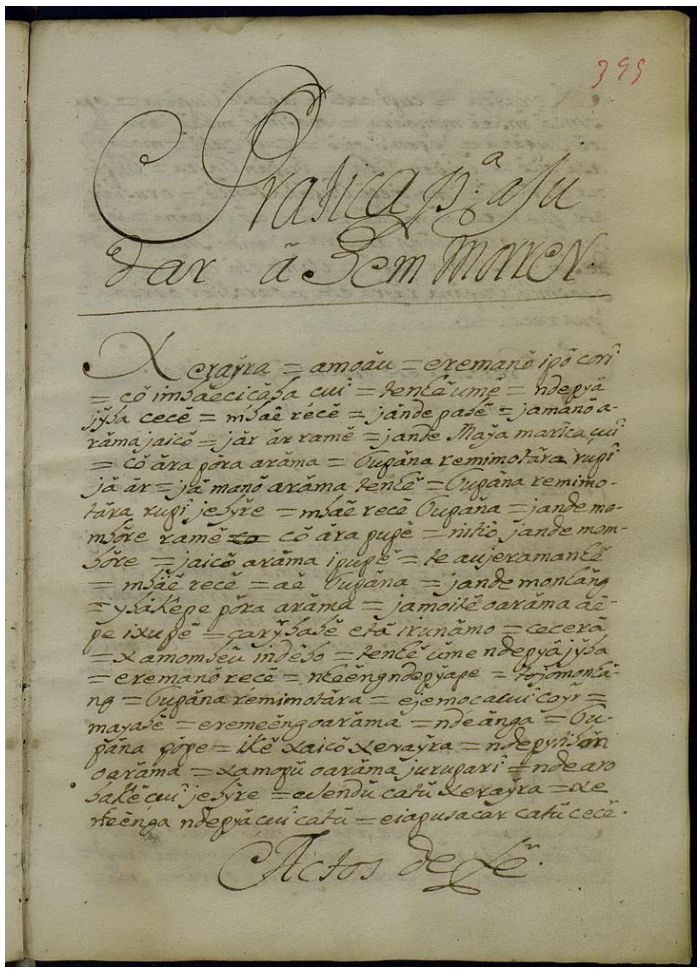 395
Pratica p.ª aju
dar ã Bem morrer.
Xerayra = amoãu = eremanõ ipõ corî
= cõ imbäecicaba cuî = tenhẽ umẽ = ndepyã
jyba cecẽ = mbaẽ rẽcẽ = jande pabẽ = jamanõ a-
rãma jaicõ = jãr ãr ramẽ = jande Maya marîca cuî
= cõ ãra põra arãma = Tupãna remimotãra rupî
jã ãr = jã manõ arãma tenhẽ = Tupãna remimo-
tãra rupî jebyre = mbaẽ recẽ Tupãna = jande mo-
mbõre ramẽ cõ ãra pupẽ = nitiõ jande mom-
bõre = jaicõ arãma ipupẽ = te aujeramanhẽ
= mbaẽ recẽ = aẽ Tupãna = jande monhãng
= ybakẽpe põra arãma = jamoitẽ oarãma aẽ-
pe ixupẽ = carybabẽ etã irunãmo = cecerã
= xamombeũ indẽbo = tenhẽ ume ndepyã jyba
= eremanõ recẽ = nheẽng ndepyape =
ng = Tupãna rẽmimotãra = coyr =
mayabẽ = eremeẽng oarãma = nde ãnga = Tu-
pãna põpe = ikẽ xaicõ xerayra = ndepytybõn
oarãma = xamopũ oarãma juruparî = nde aro
bakẽ cuî jebyre = esendũ catũ xerayra = xe
nheẽnga ndepyã cuî catũ = catũ cecẽ.
Actos de fẽ.